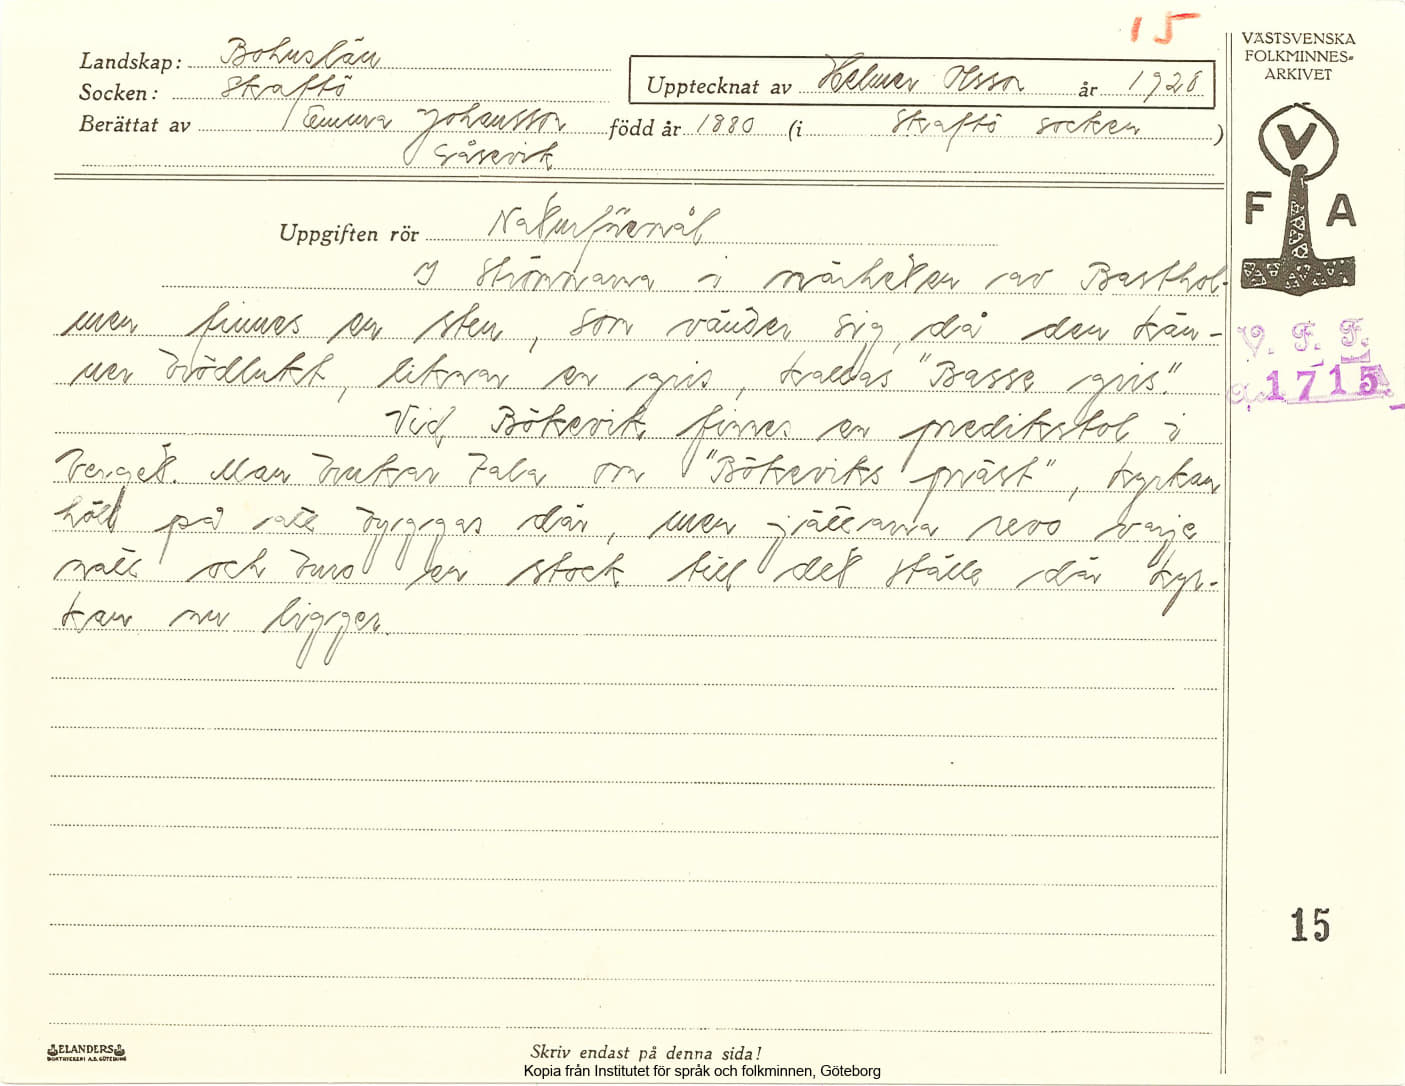 15
VÄSTSVENSKA
FOLKMINNES-
ARKIVET
Landskap: Bohuslän
Socken: Skaftö
Upptecknat av Helmer Olsson år 1928
Berättat av Emma Johansson född år 1880 (i Skaftö socken)
Gåsevik
V
F A
Uppgiften rör Naturföremål
I Strömmarna i närheten av Barthol-
men finnes en sten, som vänder sig, då den kän-
ner brödlukt, liknar en gris, kallas "Basse gris".
V. F. F.
1715
Vid Bökevik finnes en predikstol i
berget. Man brukar tala om "Bökeviks präst", kyrkan
höll på att byggas där, men jättarna revo varje
natt och buro en stock till det ställe där kyr-
kan nu ligger.
15
ELANDERS
BOKTRYCKERI A.B. GÖTEBORG
Skriv endast på denna sida!
Kopia från Institutet för språk och folkminnen, Göteborg